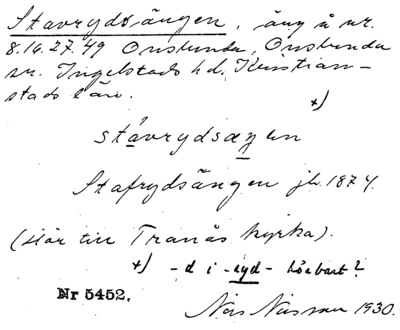 Stavrydsängen, äng å nr.
8.16.27.49 Onslunda, Onslunda
sn. Ingelstads hd. Kristian-
stads län.
+)
stavrydsæŋen
Stafrydsängen jb. 1874.
(Hör till Tranås kyrka).
+) -d i -ryd- hörbart?
Nr 5452.
1930.